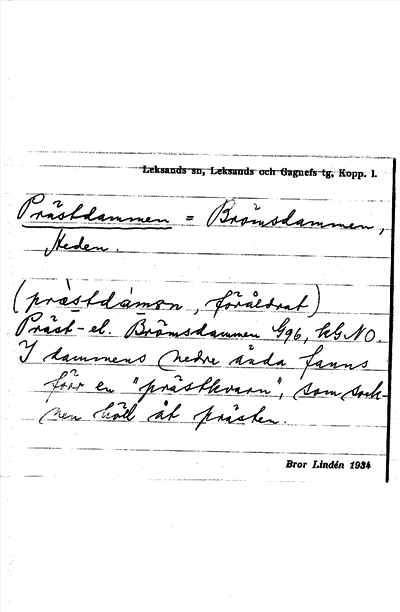 Leksands sn, Leksands och Gagnefs tg, Kopp. l.
Prästdammen = Brömsdammen,
Heden.
(prȧstdȧmən, föråldrat)
Präst- el. Brömsdammen G96, kG NO.
I dammens nedre ända fanns
förr en "prästkvarn", som sock-
nen höll åt prästen.
Bror Lindén 1934